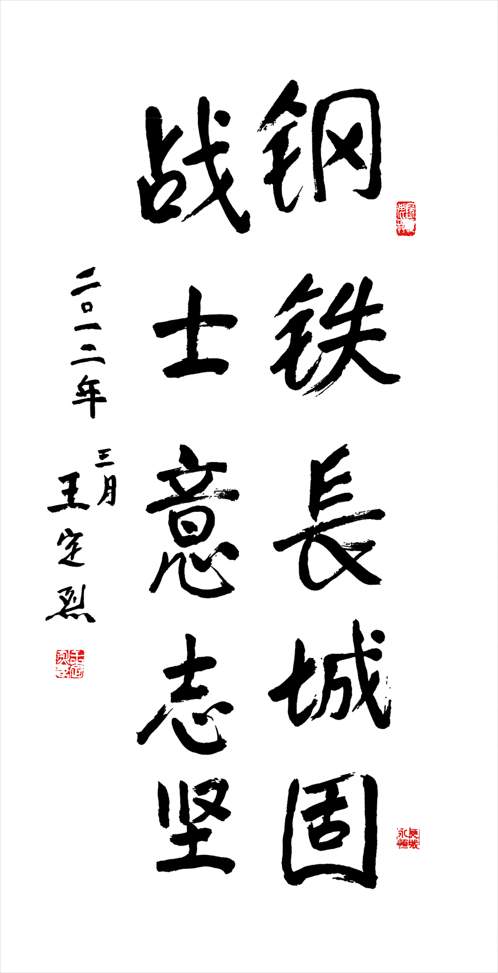 钢铁長城固
战士意志坚
二〇一二年
三月
王定烈